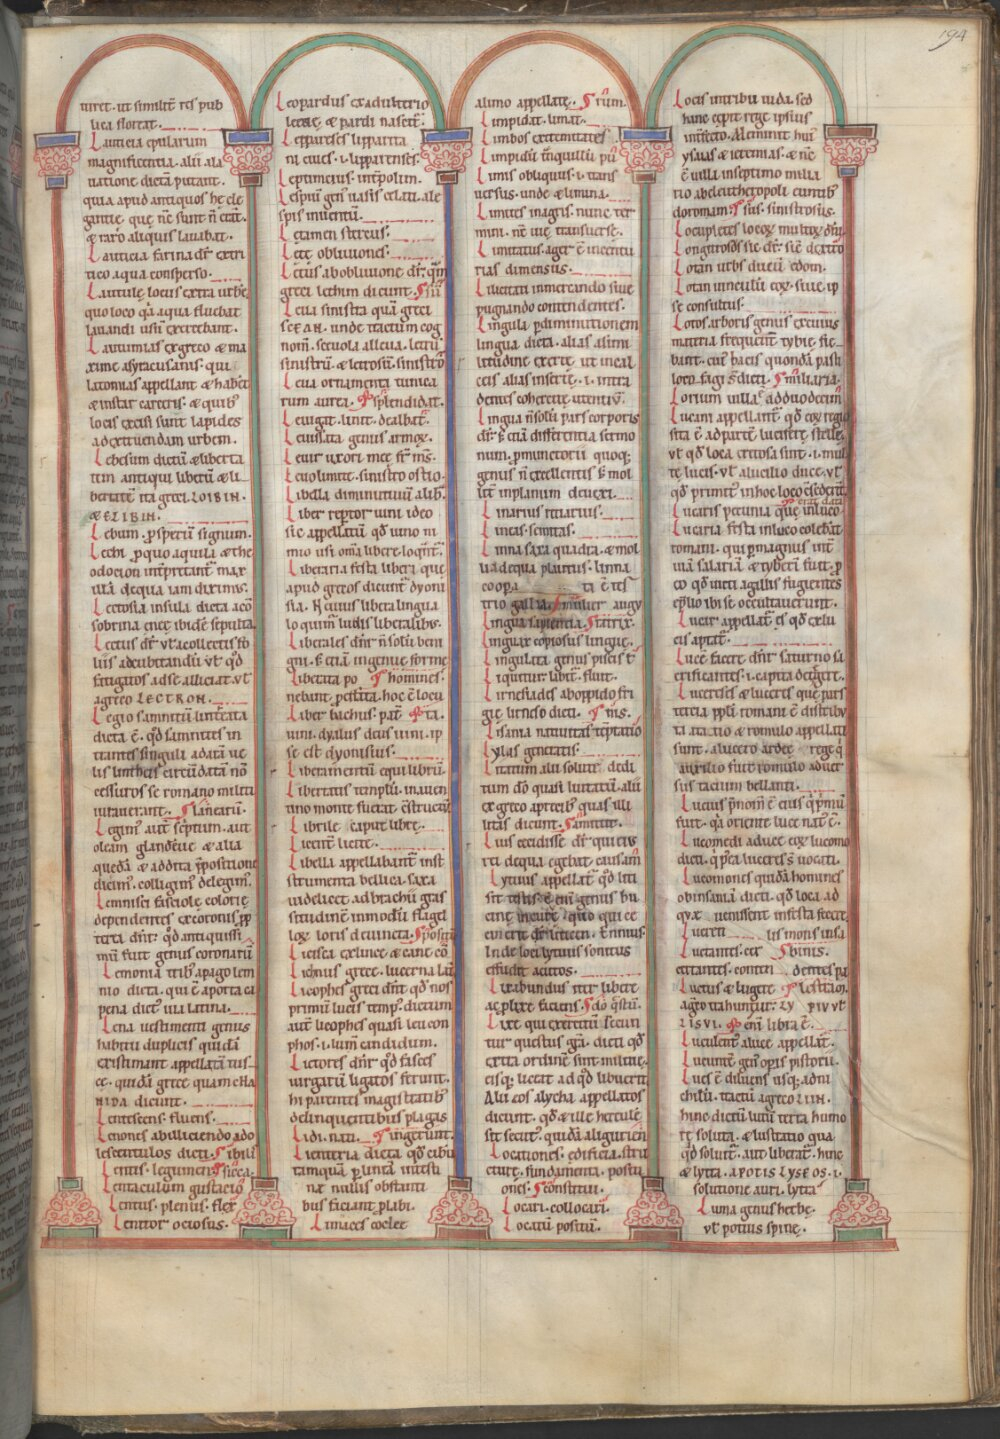 194
uiret. ut similit̄ res pub
lica floreat.
Lauticia epularum
magnificentia. alii a la
uatione dictā putant.
quia apud antiquos hę ele
gantię. quę nc̄ sunt n̄ erāt.
& raro aliquis lauabat.
Lauticia farina dr̄ ex tri
tico aqua consperso.
Lautulę locus extra urbē.
quo loco qa aqua fluebat
lauandi usū exercebant.
Lautumias ex greco & ma
xime a syracusanis. qui
latomias appellant & habēt
ad instar carceris. ex quib;
locis excisi sunt lapides
ad extruendam urbem.
Lebesum dictū a liberta
tem antiqui liberū & li
bertatē ita greci. LOIBIN.
& ELIBIN.
Lebum. prosperū signum.
odocion int̄pretant̄ max
illā de qua iam diximus.
Lectosia insula dicta a cō
sobrina enee ibidē sepulta.
Lectus dr̄ ut̄ a collectis fo
liis ad cubitandū. ut̄ qd̄
fatigatos ad se alliciat. ut̄
a greco LECTRON.
Legio samnitiū linteata
dicta ē. qd̄ samnites in
trantes singuli ad arā ue
lis linteis circūdatā nō
cessuros se romano militi
iurauerant. lanearū.
Legimꝰ aut̄ scriptum. aut
oleam glandēue & alia
quedā & addita p̄positione
dicimꝰ. colligimꝰ delegimꝰ.
Lemnisci fasciolę colorię
dependentes ex coronis. pp
terea dn̄r. qd̄ antiquissi
mū fuit genus coronariū
Lemonia trib; a pago lem
nio dicta. qui ē a porta ca
pena dict̄ uia latina.
Lena uestimenti genus
habitu duplicis quidā
existimant appellatā tus
ce. quidā grece quam CHLA
NIDA dicunt.
Lentescens. fluens.
Lenones ab alliciendo ado
lescentulos dicti. sibili
Lentis. leguminis sicca.
Lentaculum gustatio
Lentus. plenus. flex
Lentior ociosus.
Leopardus ex adulterio
leenę & pardi nascit̄.
Lepareses lipparita
ni ciues. i. lipparenses.
Leptimeius. int̄polim.
Lespiū genꝰ uasis celati. ale
spis inuentū.
Letamen stercus.
Letę obliuiones.
Letus ab obliuione dr̄. qm̄
greci lethum dicunt.
Leua sinistra quā greci
SCEAN. unde tractum cog
nom̄. sceuola a lleua. letū.
sinistrū. & letrosū. sinistrō
Leua ornamenta tunica
rum aurea. splendidat.
Leuigat. linit. dealbat̄.
Leuissata genus armoꝝ.
Leuir uxori meę fr̄ ms̄.
Leuo limite. sinistro ostio.
Libella diminutiuū a lib̄.
Liber reptor uini ideo
sic appellatū qd̄ uino ni
mio usi om̄a libere loqn̄t̄.
Liberaria festa liberi quę
apud grecos dicunt̄ dyoni
sia. N cuius libera lingua
loquim̄ ludis liberalibꝰ.
Liberales dn̄r n̄ solū beni
gni. s; etiā ingenuę formę
Libertata po homines.
nebant̄ perferta. hoc ē loeu
Liber bachus. pat̄ ta.
uini. dyalus deus uini. ip
se est dyonisius.
Liberamentū equi librū.
Libertatis templū. in auen
tino monte fuerat ēstructū
Librile caput librę.
Licent̄ licite.
Libella appellabant̄ inst
strumenta bellica. saxa
uidelicet ad brachii gras
situdinē in modū flagel
loꝝ loris deuincta.
Licisca ex lupo & cane cō
Lichnus grece. lucerna lat̄
Licophęs greci dn̄t qd̄ nos
primū lucis tempꝰ dictum
aut̄ licophęs quasi leucon
phos. i. lum̄ candidum.
Lictores dn̄r qd̄ fasces
uirgarū ligatos ferunt.
hi parentes magistratib;
delinquentibus plagis
Lidi. nati. ingerunt.
Lienteria dicta qd̄ cibū
tamquā p lenia intesti
na nullis obstanti
bus faciant plabi.
Limaces coclee
a limo appellatę.
Limpidat. limat.
Limbos extremitates
Limpidū tn̄quillū pū
Limis obliquis. i. trans
uersus. unde & limina.
Limites in agris. nunc ter
mini. nc̄ uię transuersę.
Limitatus. ager ē in centu
rias dimensus.
Licitati in mercando siue
pugnando contendentes.
Lingula p diminutionem
lingua dicta. alias a simi
litudine exertę. ut in cal
ceis alias insertę. i. intra
dentes cohercitę ut in tū.
Lingua n̄ solū pars corporis
dr̄. s; etiā differentia sermo
num. promunctorii quoq;
genus n̄ excellentis s; mol
lit̄ in planum deuexi.
Linarius retiarius.
Lineas. semitas.
Linna saxa quadra. & mol
lia de qua plautus. linna
coopa ti ē tex
trio gallia. mulier augu
Lingua sapiencia. tatrix.
Linguax copiosus linguę.
Lingulata genus piscis t̄
Liquitur. libit̄. fluit.
Lirnesiades ab oppido fri
gię lirneso dicti. ms̄.
Lisania natiuitas teptatio
Lylas generatis.
Litatum alii solutē dedi
tum dō quasi luitatū. alii
ex greco aprecib; quas illi
litas dicunt. amittit.
Lius cecidisse dr̄ qui eius
rei de qua egebat causam
Lytuus appellat̄ qd̄ liti
sit testis & enī genus bu
cinę incuruę quo qui ce
cinerit dr̄ liticen. ennius.
Inde loci lytuus sonitus
effudit acutos.
Lixabundus iter libere
ac plixe faciens.
Lixę qui exercitū secun
tur questus grā. dicti qd̄
extra ordinē sint militię.
eisq; liceat ad qd̄ libuerit.
Alii eos a lycha appellatos
dicunt. qd̄ & ille herculē
sit secut̄. quidā a ligurien
Locationes. edificia. stru
cturę. fundamenta. positi
ones. constitui.
Locari. collocari.
Locatū positum.
Locus in tribu iuda. sed
hanc cepit rege ipsius
int̄fecto. Meminit huiꝰ
ysaias & ieremias. & nc̄
ē uilla in septimo milia
rio ab eleutheropoli euntib;
ad romam. sus. sinistrosus.
Locupletes locoꝝ multoꝝ dn̄i
Longitrosūs sic dr̄. sic̄ dextro
Lotan urbs ducū edom.
Lotan uinculū eoꝝ. siue ip
se consultus.
Lotos. arboris genus ex cuius
materia frequent̄ tybię fie
bant. cuiꝰ bacis quondā pasti
lotofagi sr̄ dicti. miliaria.
Lorium uilla ad duodecimū
Lucani appellant̄. qd̄ eoꝝ regio
sita ē. ad partē luciferę stellę
ut̄ qd̄ loca cretosa sunt. i. mul
tę lucis. ut̄ a lucilio duce. ut̄
qd̄ primit̄ in hoc loco cōsederit
Lucaris pecunia que in luco
Lucaria festa in luco colebāt
romani. qui permagnus int̄
uiā salariā & tyberī fuit. p
eo qd̄ uicti a gallis fugientes
eplio ibi se occultauerunt.
Luceir appellat̄ es qd̄ exlu
ceis aptat̄.
Lucē facere dn̄r saturno sa
crificantes. i. capita detegere.
Lucereses & luceres quę pars
tercia ppli romani ē distribu
ta a tatio & romulo appellati
sunt. a lucero ardee rege q
auxilio fuit romulo aduer
sus tacium bellanti.
Lucius p̄nom̄ ē eius q p̄mū
fuit. qa oriente luce nat̄ ē.
Lucomedi a duce eoꝝ lucomo
dicti. q p̄ea lucereses uocati.
Lucomones quidā homines
ob insaniā dicti. qd̄ loca ad
quę uenissent infesta facert̄
Lucrin bis monis insa
Luctantes. cer binis.
certantes. conten dentes pa
Luctus & lugere
a greco trahuntur. LY PI ut̄
LISVI. enī libra ē.
Luculent̄ a luce appellat̄.
Lucuntē. genꝰ operis pistorii.
Lues ē diluens usq; ad ni
chilū. tractū a greco LUIN.
hinc dictū lutū terra humo
rę soluta. & lustratio qua
qd̄ soluit̄. aut liberat̄. hinc
& lytta. APOTIS LYSEOS. i.
solutione auri. lytta
Luma genus herbę.
ut̄ potius spinę.